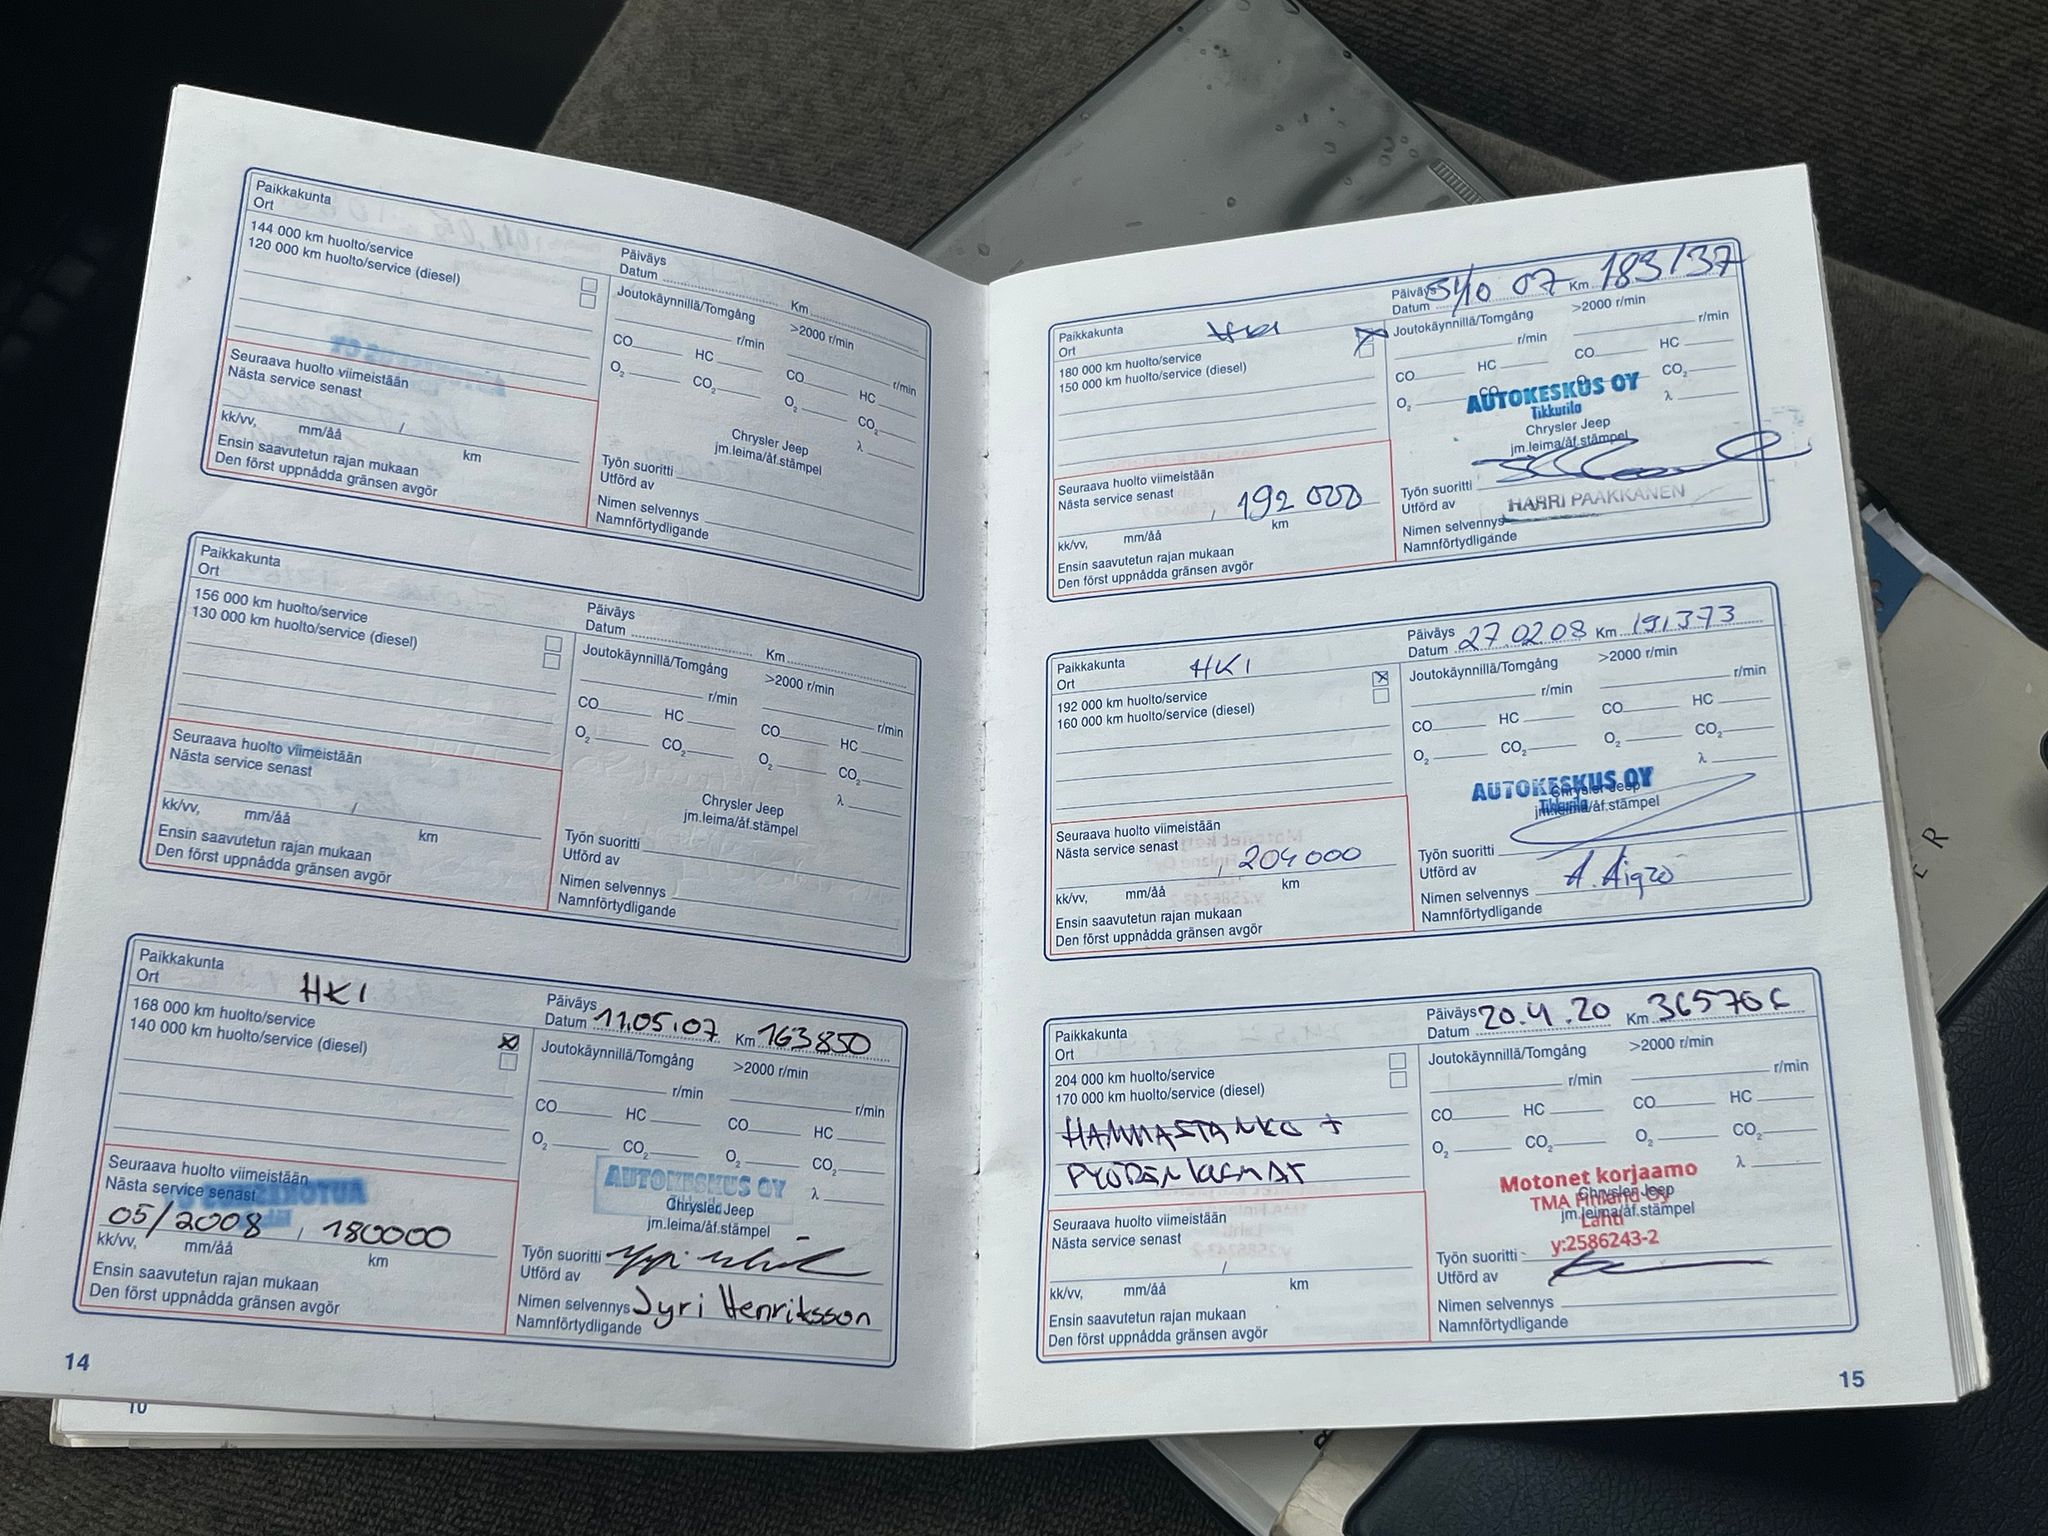 Paikkakunta
Ort
144 000 km huolto/service
120 000 km huolto/service (diesel)
Päiväys
Datum
Km
Joutokäynnillä/Tomgång
>2000 r/min
r/min
r/min
CO
HC
CO
HC
O2
CO2
O2
CO2
λ
Seuraava huolto viimeistään
Nästa service senast
/
kk/vv, mm/åå km
Ensin saavutetun rajan mukaan
Den först uppnådda gränsen avgör
Chrysler Jeep
jm.leima/åf.stämpel
Työn suoritti
Utförd av
Nimen selvennys
Namnförtydligande
Paikkakunta
Ort
156 000 km huolto/service
130 000 km huolto/service (diesel)
Päiväys
Datum
Km
Joutokäynnillä/Tomgång
>2000 r/min
r/min
r/min
CO
HC
CO
HC
O2
CO2
O2
CO2
λ
Seuraava huolto viimeistään
Nästa service senast
/
kk/vv, mm/åå km
Ensin saavutetun rajan mukaan
Den först uppnådda gränsen avgör
Chrysler Jeep
jm.leima/åf.stämpel
Työn suoritti
Utförd av
Nimen selvennys
Namnförtydligande
Paikkakunta
Ort HKI
168 000 km huolto/service
140 000 km huolto/service (diesel)
Päiväys
Datum 11.05.07 Km 163850
Joutokäynnillä/Tomgång
>2000 r/min
r/min
r/min
CO
HC
CO
HC
O2
CO2
O2
CO2
λ
Seuraava huolto viimeistään
Nästa service senast
05/2008 , 180000
kk/vv, mm/åå km
Ensin saavutetun rajan mukaan
Den först uppnådda gränsen avgör
AUTOKESKUS OY
Tikkurila
Chrysler Jeep
jm.leima/åf.stämpel
Työn suoritti
Utförd av
Nimen selvennys Jyri Henriksson
Namnförtydligande
14
10
Paikkakunta
Ort HKI
180 000 km huolto/service
150 000 km huolto/service (diesel)
Päiväys
Datum 07 Km 183137
Joutokäynnillä/Tomgång
>2000 r/min
r/min
r/min
CO
HC
CO
HC
O2
CO2
CO2
λ
AUTOKESKUS OY
Tikkurila
Chrysler Jeep
jm.leima/åf.stämpel
Seuraava huolto viimeistään
Nästa service senast
, 192 000
kk/vv, mm/åå km
Ensin saavutetun rajan mukaan
Den först uppnådda gränsen avgör
Työn suoritti
Utförd av
HARRI PAAKKANEN
Nimen selvennys
Namnförtydligande
Paikkakunta
Ort HKI
192 000 km huolto/service
160 000 km huolto/service (diesel)
Päiväys
Datum 27.02.08 Km 191373
Joutokäynnillä/Tomgång
>2000 r/min
r/min
r/min
CO
HC
CO
HC
O2
CO2
O2
CO2
λ
AUTOKESKUS OY
Tikkurila
Chrysler Jeep
jm.leima/åf.stämpel
Seuraava huolto viimeistään
Nästa service senast
, 204000
kk/vv, mm/åå km
Ensin saavutetun rajan mukaan
Den först uppnådda gränsen avgör
Työn suoritti
Utförd av
Nimen selvennys A. Aigro
Namnförtydligande
Paikkakunta
Ort
204 000 km huolto/service
170 000 km huolto/service (diesel)
HAMMASTANKO +
Päiväys
Datum 20.4.20 Km
Joutokäynnillä/Tomgång
>2000 r/min
r/min
r/min
CO
HC
CO
HC
O2
CO2
O2
CO2
λ
Motonet korjaamo
TMA Finland Oy
Chrysler Jeep
Lahti
jm.leima/åf.stämpel
y:2586243-2
Seuraava huolto viimeistään
Nästa service senast
/
kk/vv, mm/åå km
Ensin saavutetun rajan mukaan
Den först uppnådda gränsen avgör
Työn suoritti
Utförd av
Nimen selvennys
Namnförtydligande
15
E R